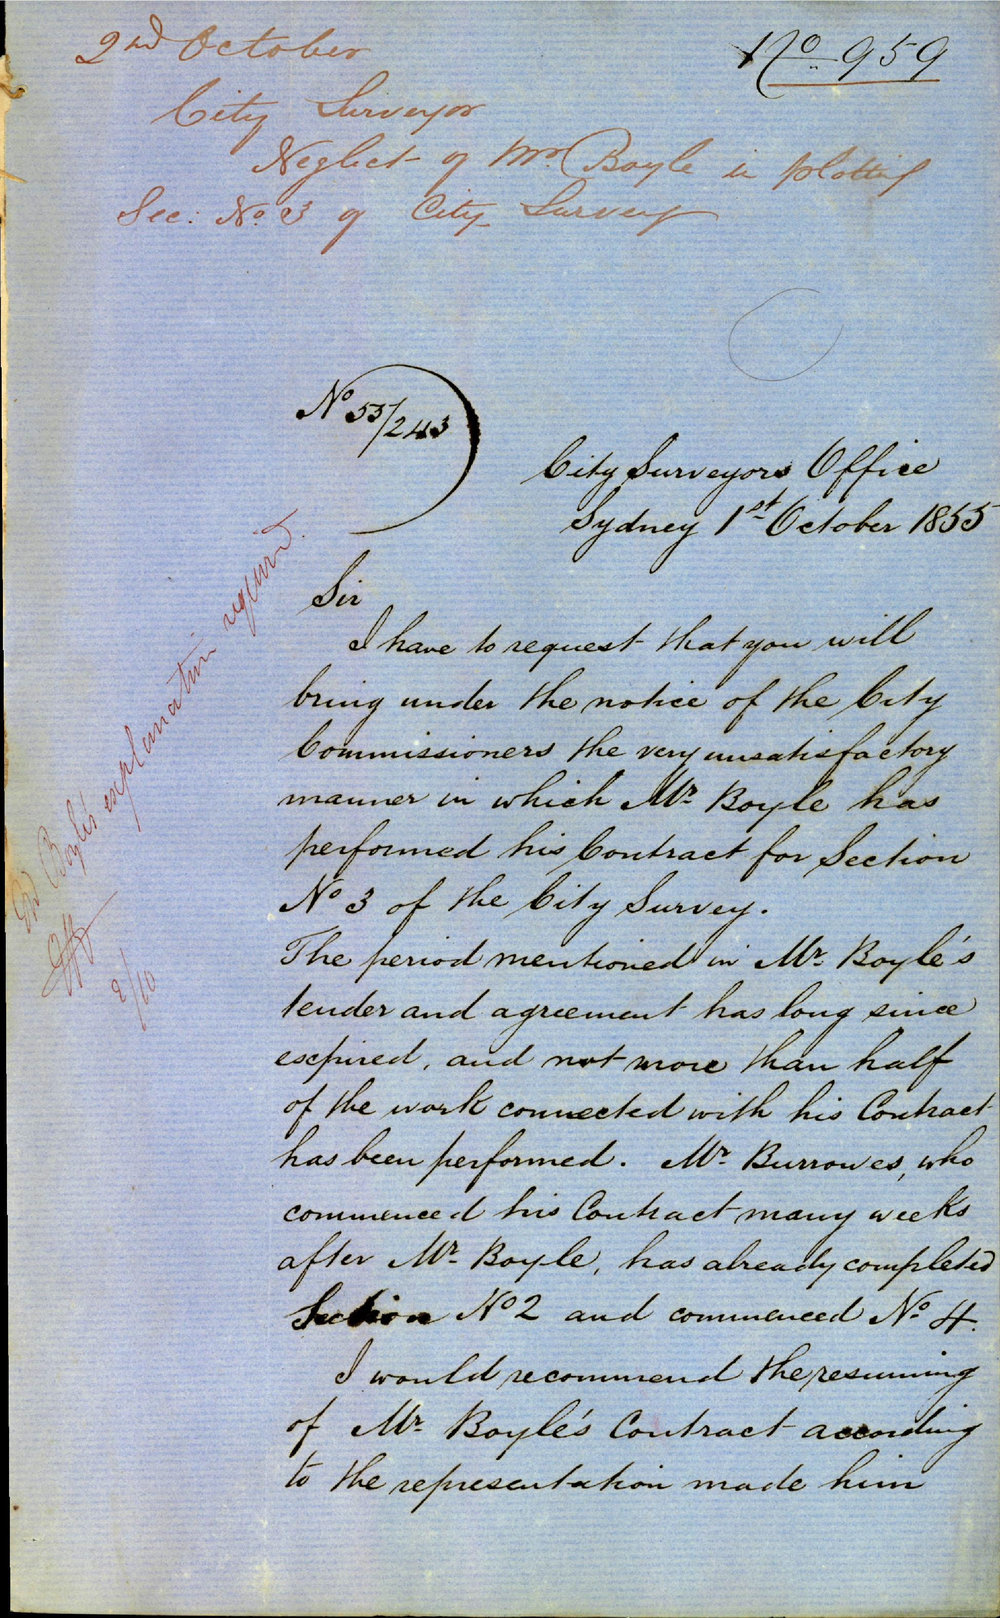 2nd October
No 959
City Surveyor
Neglect of Mr. Boyle in plotting
Sec: No. 3 of City Survey
No 55/243
City Surveyors Office
Sydney 1st October 1855
Sir
I have to request that you will
bring under the notice of the City
Commissioners the very unsatisfactory
manner in which Mr. Boyle has
performed his Contract for Section
No 3 of the City Survey.
The period mentioned in Mr. Boyle's
tender and agreement has long since
expired, and not more than half
of the work connected with his Contract
has been performed. Mr. Burrowes, who
commenced his Contract many weeks
after Mr. Boyle, has already completed
Section No 2 and commenced No. 4.
I would recommend the resuming
of Mr. Boyle's Contract according
to the representation made him
Mr Boyle's explanation required.
2/10